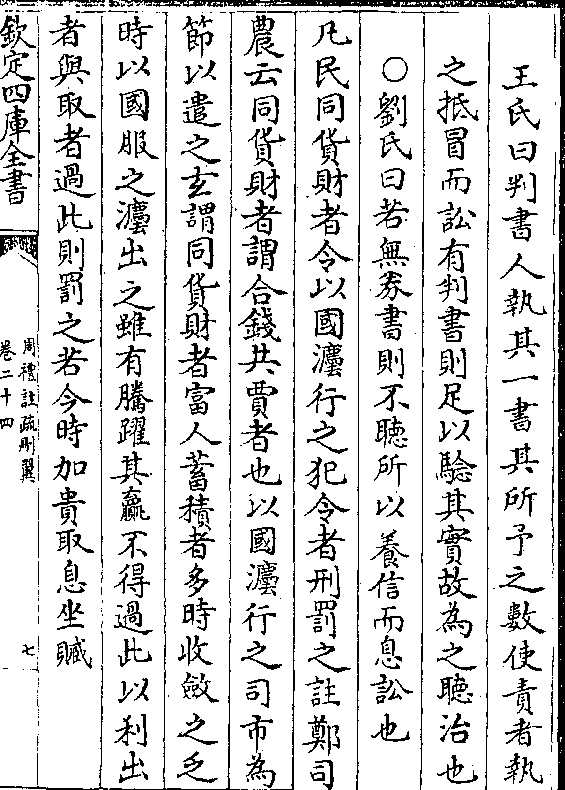 王氏曰判書人執其一書其所予之數使責者執
之抵冒而訟有判書則足以驗其實故為之聽治也
○劉氏曰若無券書則不聽所以養信而息訟也
凡民同貨財者令以國灋行之犯令者刑罰之註鄭司
農云同貨財者謂合錢共賈者也以國灋行之司市為
節以遣之玄謂同貨財者富人蓄積者多時收斂之乏
時以國服之灋出之雖有騰躍其贏不得過此以利出
者與取者過此則罰之若今時加貴取息坐贓
欽定四庫全書
周禮註疏刪翼
卷二十四
七